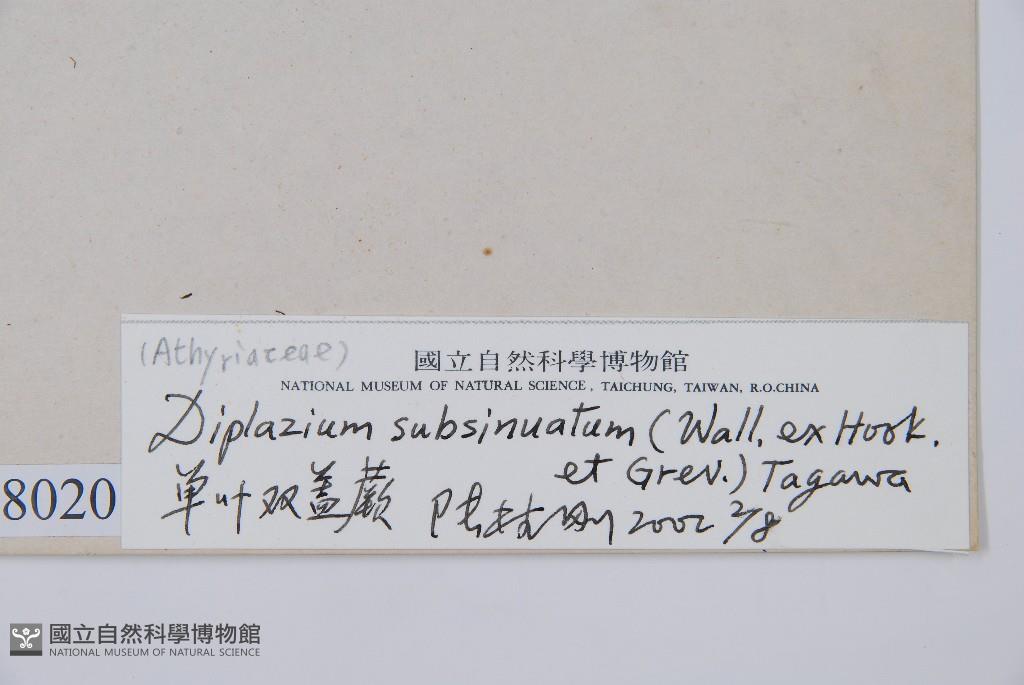 (Athyriaceae)
國立自然科學博物館
NATIONAL MUSEUM OF NATURAL SCIENCE, TAICHUNG, TAIWAN, R.O.CHINA
Diplazium subsinuatum (Wall. ex Hook.
et Grev.) Tagawa
单叶双盖蕨 2002 2/8
8020
國立自然科學博物館
NATIONAL MUSEUM OF NATURAL SCIENCE